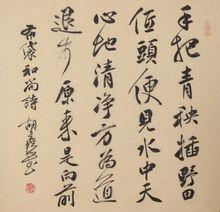 手把青秧插野田
低頭便見水中天
心地清淨方為道
退步原來是向前
布袋和尚詩